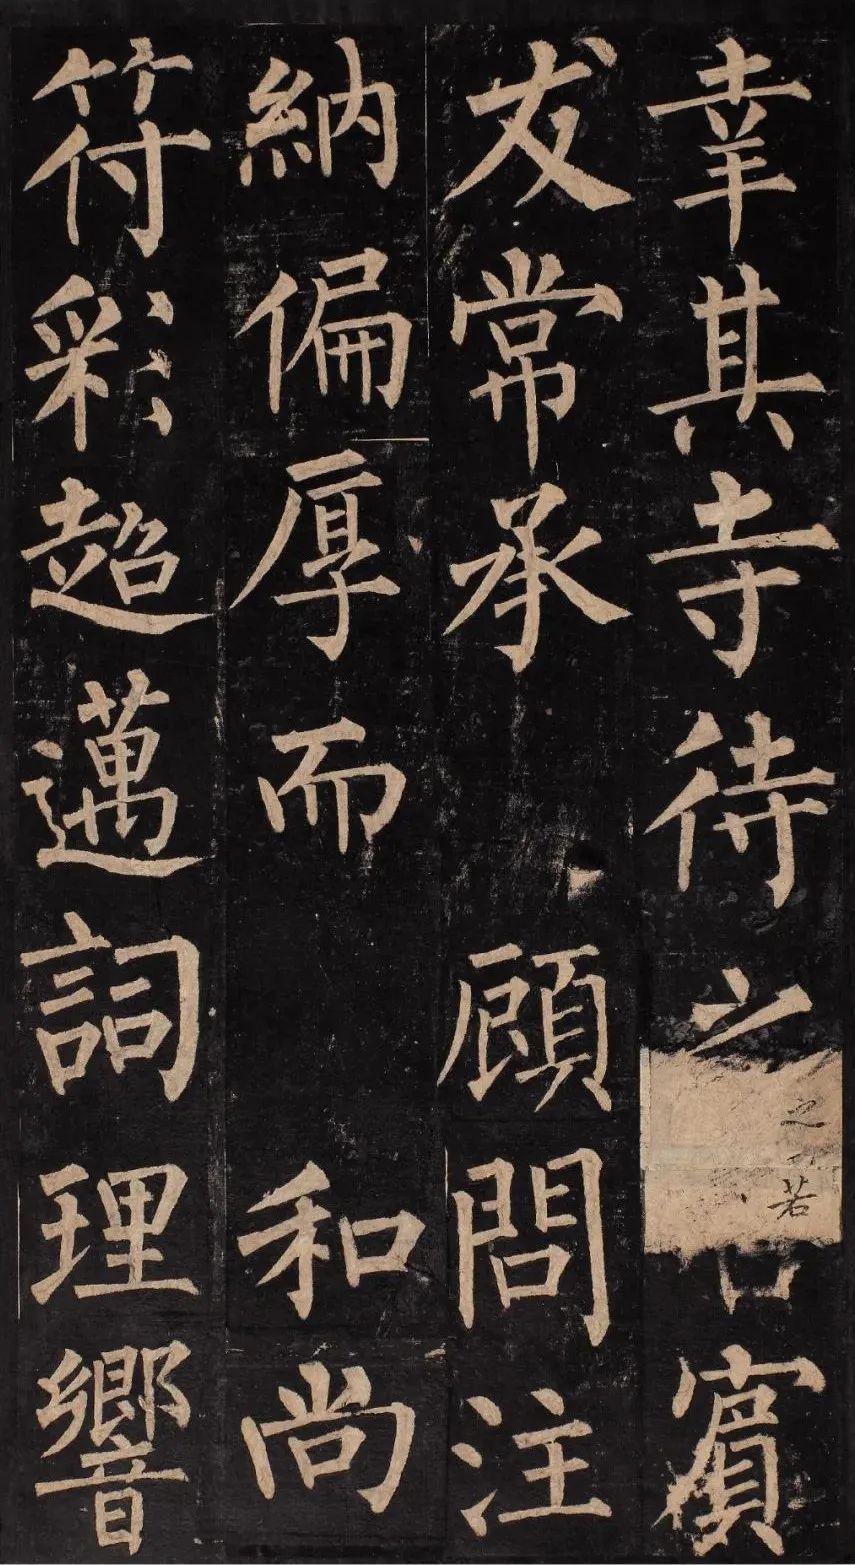 幸其寺待之若賓
友常承顧問注
納偏厚而和尚
符彩超邁詞理響
之若